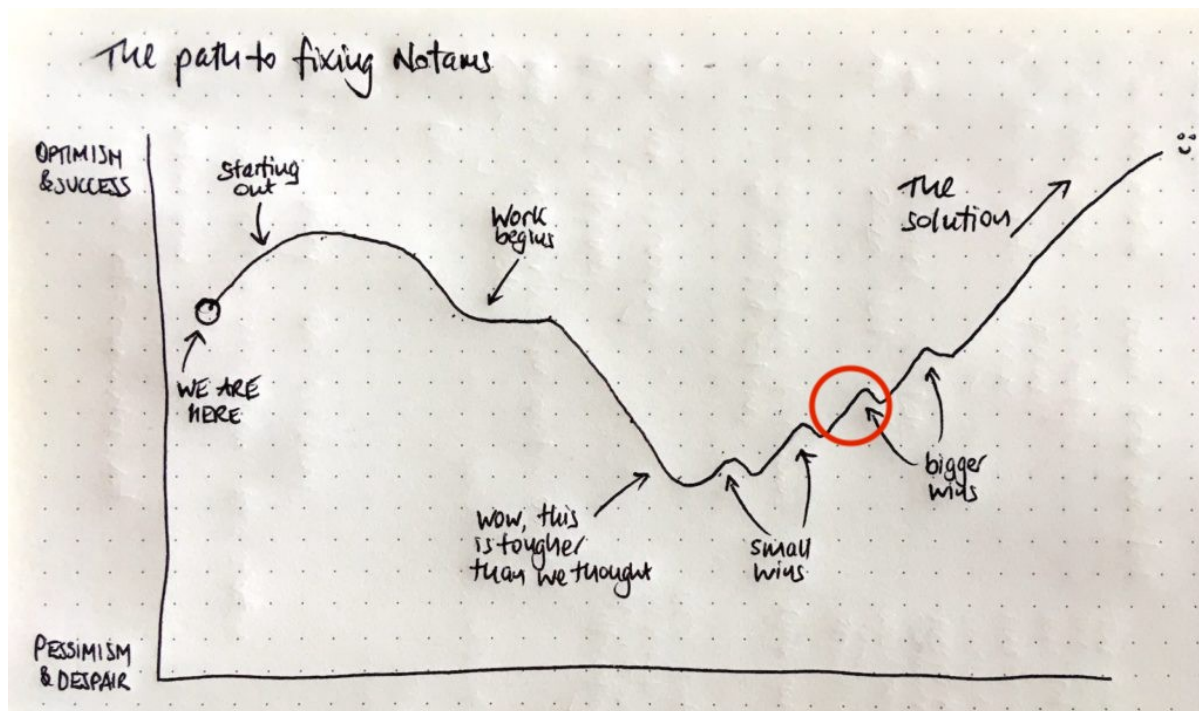 The path to fixing Notams
OPTIMISM
& SUCCESS
Starting
out
Work
begins
The
solution
WE ARE
HERE
Wow, this
is tougher
than we thought
small
wins
bigger
wins
PESSIMISM
& DESPAIR